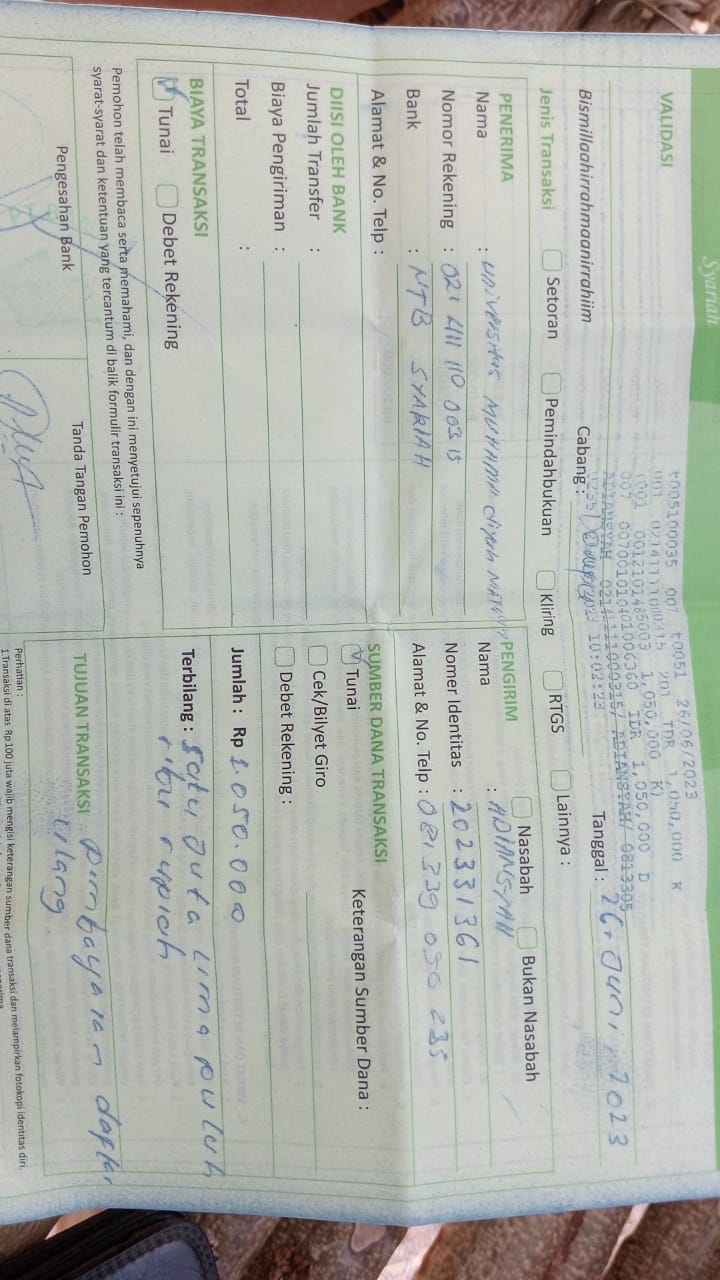 Syariah
VALIDASI
t005100035 001 t0051 26/06/2023
001 0214111000315 201 IDR 1,050,000 K
1001 0012101465003 1.050,000 K)
007 007001010401006360 IDR 1,050,000 D
ADIANSYAH 0214111000315/ ADIANSYAH/ 0813305
10:02:23
Bismillaahirrahmaanirrahiim
Cabang :
Tanggal : 26 Juni 2023
Jenis Transaksi
Setoran
Pemindahbukuan
Kliring
RTGS
Lainnya :
PENERIMA
Nama : Universitas
Nomor Rekening : 021 411 110 003 15
Bank : NTB SYARIAH
Alamat & No. Telp :
PENGIRIM
Nasabah
Bukan Nasabah
Nama : ADIANSYAH
Nomer Identitas : 202331361
Alamat & No. Telp : 081 339 050 235
DIISI OLEH BANK
Jumlah Transfer :
Biaya Pengiriman :
Total :
SUMBER DANA TRANSAKSI
Tunai
Keterangan Sumber Dana :
Cek/Bilyet Giro
Debet Rekening :
BIAYA TRANSAKSI
Tunai
Debet Rekening
Jumlah : Rp 1.050.000
Terbilang : Satu Juta Lima puluh
ribu rupiah
Pemohon telah membaca serta memahami, dan dengan ini menyetujui sepenuhnya
syarat-syarat dan ketentuan yang tercantum di balik formulir transaksi ini :
Pengesahan Bank
Tanda Tangan Pemohon
TUJUAN TRANSAKSI Pembayaran daftar
ulang
Perhatian :
1.Transaksi di atas Rp 100 juta wajib mengisi keterangan sumber dana transaksi dan melampirkan fotokopi identitas diri.